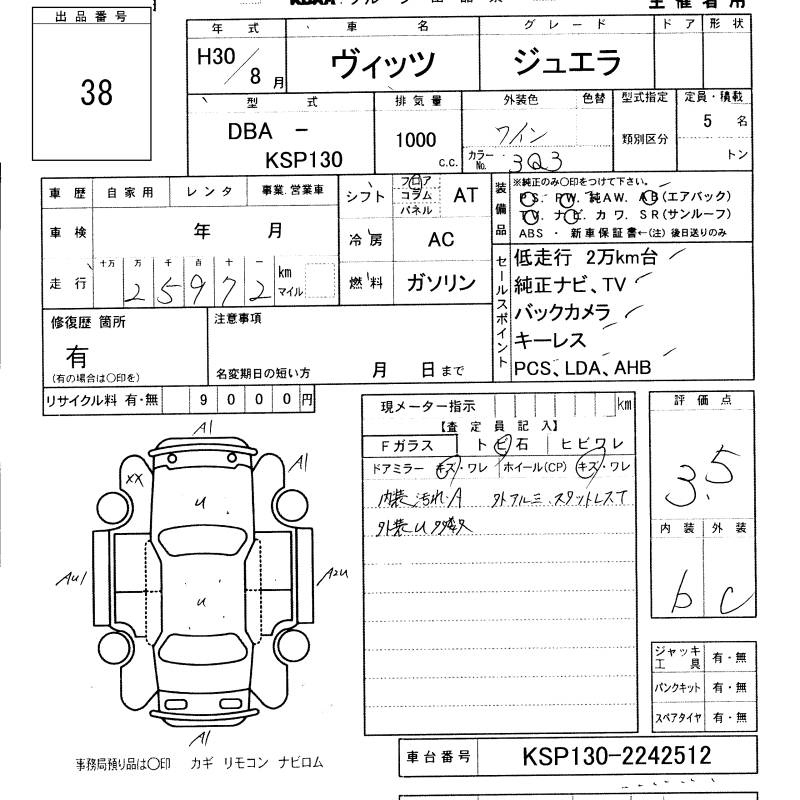 出品番号
38
年式 車名 グレード ドア 形状
H30/8月 ヴィッツ ジュエラ
型式 排気量 外装色 色替 型式指定 定員・積載
DBA - 1000 ワイン 類別区分 5名
KSP130 c.c. カラーNo. 3Q3 トン
車歴 自家用 レンタ 事業.営業車 シフト フロア コラム パネル AT
車検 年 月 冷房 AC
走行 十万 万 千 百 十 一 km マイル 燃料 ガソリン
2 5 9 7 2
装備品
※純正のみ○印をつけて下さい。
PS. PW. 純AW. AB(エアバック)
TV. ナビ. カワ. SR(サンルーフ)
ABS ・ 新車保証書←(注) 後日送りのみ
セールスポイント
低走行 2万km台
純正ナビ、TV
バックカメラ
キーレス
PCS、LDA、AHB
修復歴 箇所 注意事項
有
(有の場合は○印を) 名変期日の短い方 月 日まで
リサイクル料 有・無 9000円
現メーター指示 km
【査定員記入】
Fガラス トビ石 ヒビワレ
ドアミラー キズ・ワレ ホイール(CP) キズ・ワレ
内装 汚れ・A 外アルミ.スタットレスT
外装U
評価点
3.5
内装 外装
b c
A1
A1
XX
U
AU1
A2U
U
A1
ジャッキ工具 有・無
パンクキット 有・無
スペアタイヤ 有・無
事務局預り品は○印 カギ リモコン ナビロム
車台番号 KSP130-2242512